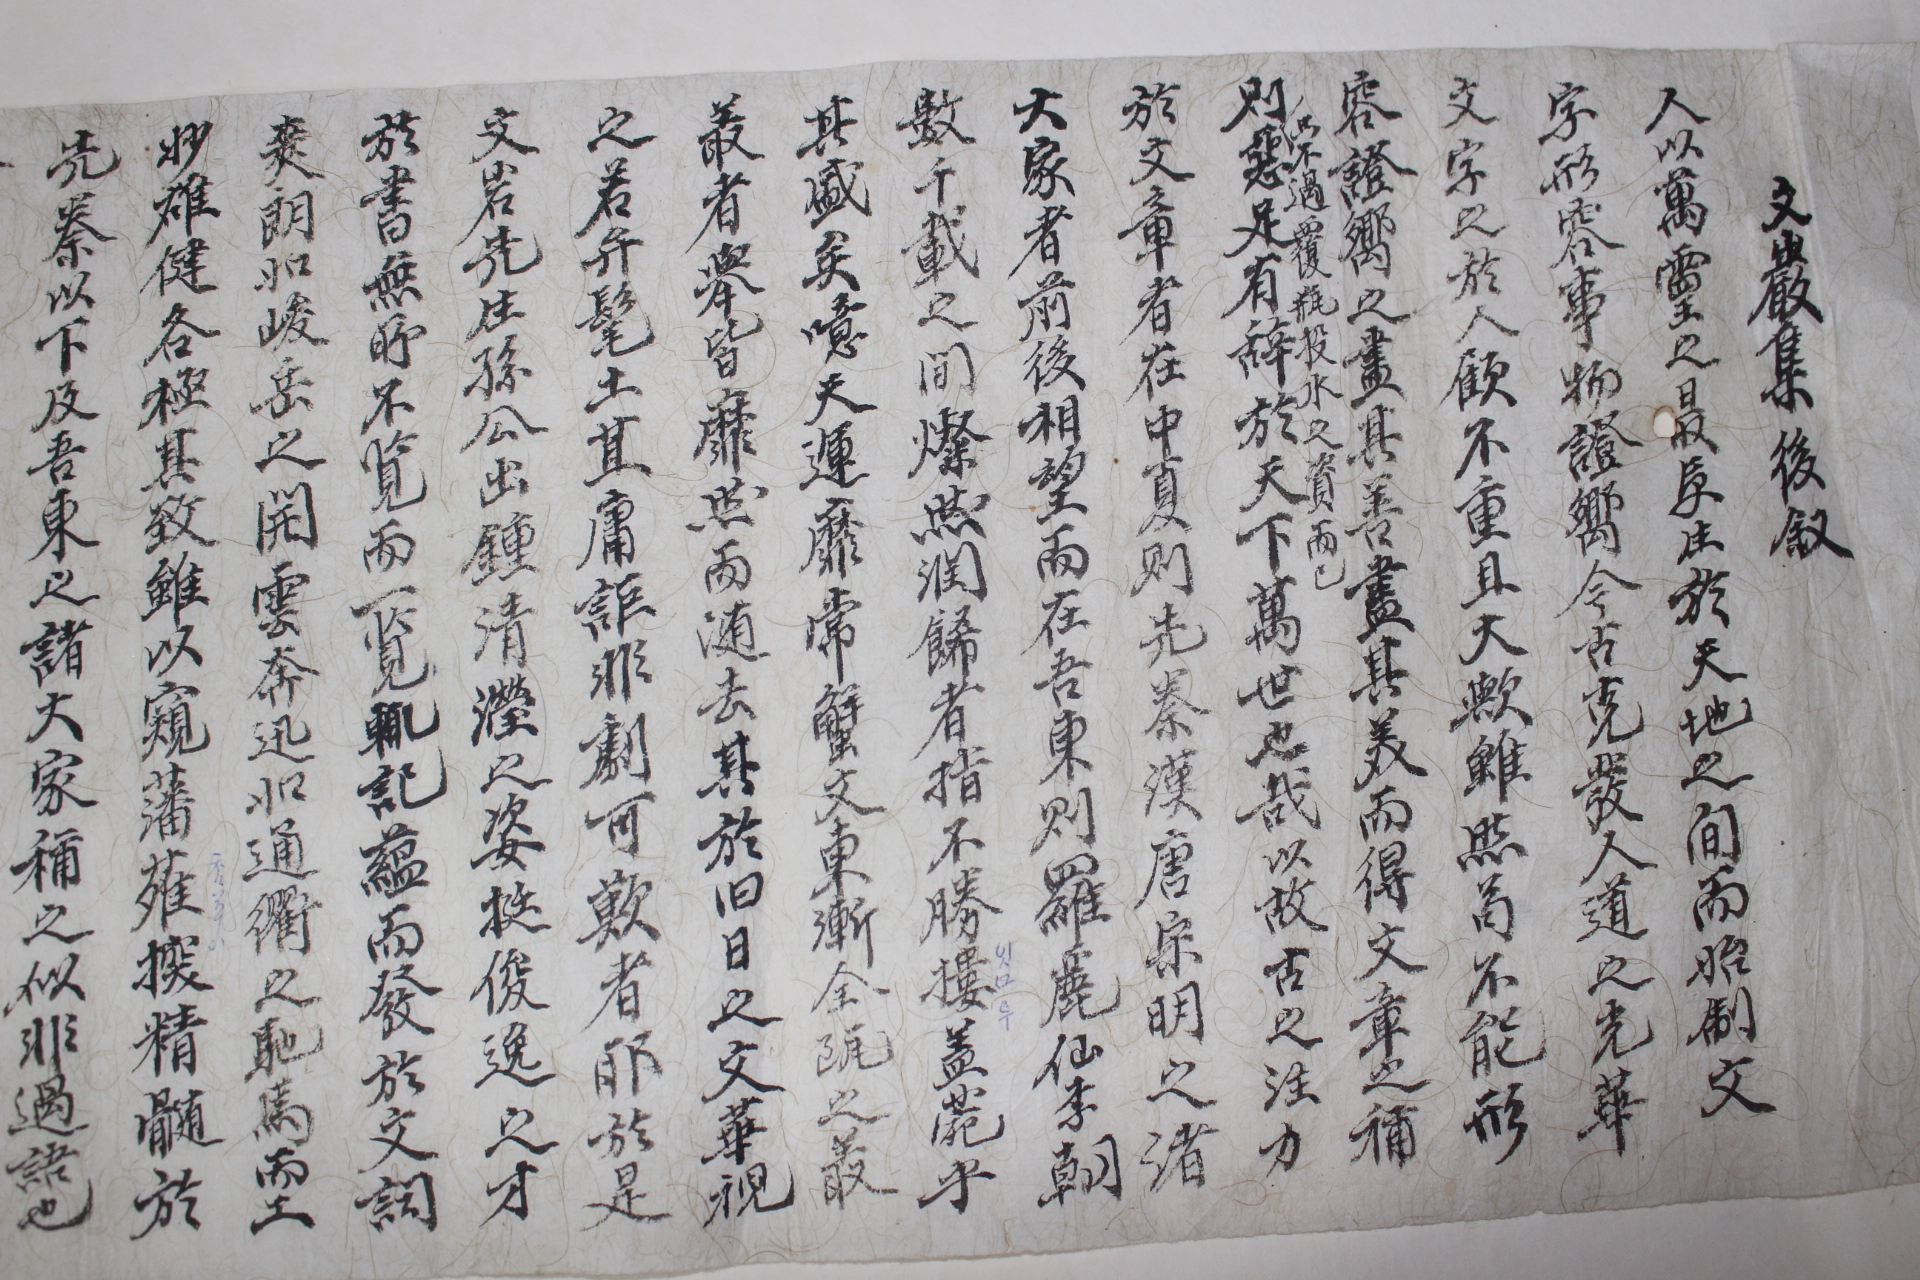 文巖集後敘
人以萬靈之最身生於天地之間而昉制文
字形容事物證嚮今古克發人道之光華
文字之於人顧不重且大歟雖然苟不能形
容證嚮之盡其善盡其美而得文章之稱
則不過覆瓶投水之資而已
則惡足有辭於天下萬世也哉以故古之注力
於文章者在中夏則先秦漢唐宋明之諸
大家者前後相望而在吾東則羅麗仙李朝
數千載之間燦然潤餙者指不勝摟盖菀乎
其盛矣噫天運靡常蟹文東漸全甌之叢
叢者擧皆靡然而随去其於旧日之文華視
之若弁髦土苴庸詎非劇可歎者耶於是
文岩先生孫公出鍾清瀅之姿挺俊逸之才
於書無所不覧而一覧輒記蘊而發於文詞
爽朗如峻岳之開雲奔迅如通衢之馳馬而工
妙雄健各極其致雖以窺藩蘺摸精髓於
先秦以下及吾東之諸大家稱之似非過語也